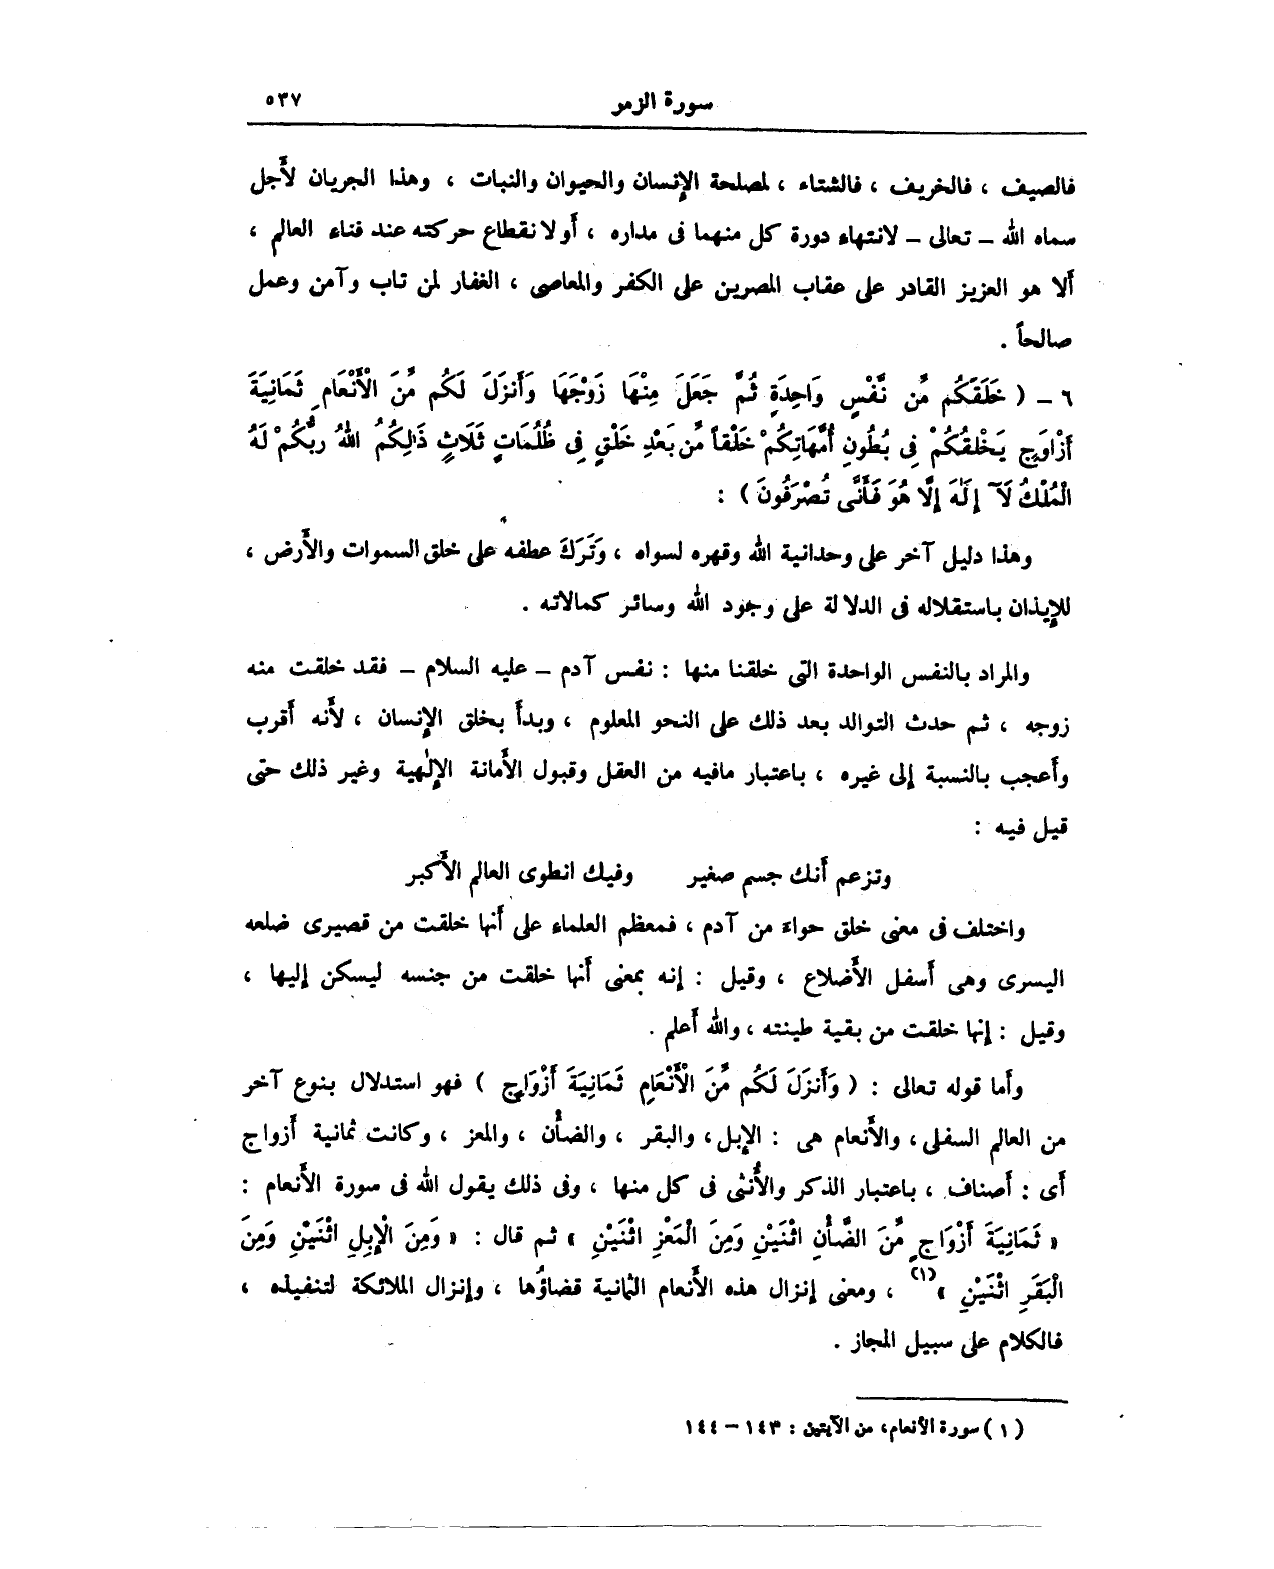 سورة الزمر ٥٣٧
فالصيف ، فالخريف ، فالشتاء ، لمصلحة الإنسان والحيوان والنبات ، وهذا الجريان لأجل
سماه الله ــ تعالى ــ لانتهاء دورة كل منهما فى مداره ، أو لا نقطاع حركته عند فناء العالم ،
ألا هو العزيز القادر على عقاب المصرين على الكفر والمعاصى ، الغفار لمن تاب وآمن وعمل
صالحاً .
٦ ــ ( خَلَقَكُم مِّن نَّفْسٍ وَاحِدَةٍ ثُمَّ جَعَلَ مِنْهَا زَوْجَهَا وَأَنزَلَ لَكُم مِّنَ الْأَنْعَامِ ثَمَانِيَةَ
أَزْوَاجٍ يَخْلُقُكُمْ فِى بُطُونِ أُمَّهَاتِكُمْ خَلْقاً مِّن بَعْدِ خَلْقٍ فِى ظُلُمَاتٍ ثَلَاثٍ ذَالِكُمُ اللهُ رَبُّكُمْ لَهُ
الْمُلْكُ لَآ إِلَٰهَ إِلَّا هُوَ فَأَنَّى تُصْرَفُونَ ) :
وهذا دليل آخر على وحدانية الله وقهره لسواه ، وَتَرَكَ عطفه على خلق السموات والأرض ،
للإيذان باستقلاله فى الدلالة على وجود الله وسائر كمالاته .
والمراد بالنفس الواحدة التى خلقنا منها : نفس آدم ــ عليه السلام ــ فقد خلقت منه
زوجه ، ثم حدث التوالد بعد ذلك على النحو المعلوم ، وبدأ بخلق الإنسان ، لأنه أقرب
وأعجب بالنسبة إلى غيره ، باعتبار مافيه من العقل وقبول الأمانة الإلٰهية وغير ذلك حتى
قيل فيه :
وتزعم أنك جسم صغير وفيك انطوى العالم الأكبر
واختلف فى معنى خلق حواء من آدم ، فمعظم العلماء على أنها خلقت من قصيرى ضلعه
اليسرى وهى أسفل الأضلاع ، وقيل : إنه بمعنى أنها خلقت من جنسه ليسكن إليها ،
وقيل : إنها خلقت من بقية طينته ، والله أعلم .
وأما قوله تعالى : ( وَأَنزَلَ لَكُم مِّنَ الْأَنْعَامِ ثَمَانِيَةَ أَزْوَاجٍ ) فهو استدلال بنوع آخر
من العالم السفلى ، والأنعام هى : الإبل ، والبقر ، والضأن ، والمعز ، وكانت ثمانية أزواج
أى : أصناف ، باعتبار الذكر والأُنثى فى كل منها ، وفى ذلك يقول الله فى سورة الأنعام :
« ثَمَانِيَةَ أَزْوَاجٍ مِّنَ الضَّأْنِ اثْنَيْنِ وَمِنَ الْمَعْزِ اثْنَيْنِ » ثم قال : « وَمِنَ الْإِبِلِ اثْنَيْنِ وَمِنَ
الْبَقَرِ اثْنَيْنِ » (١) ، ومعنى إنزال هذه الأنعام الثمانية قضاؤُها ، وإنزال الملائكة لتنفيذه ،
فالكلام على سبيل المجاز .
(١) سورة الأنعام، من الآيتين : ١٤٣ – ١٤٤